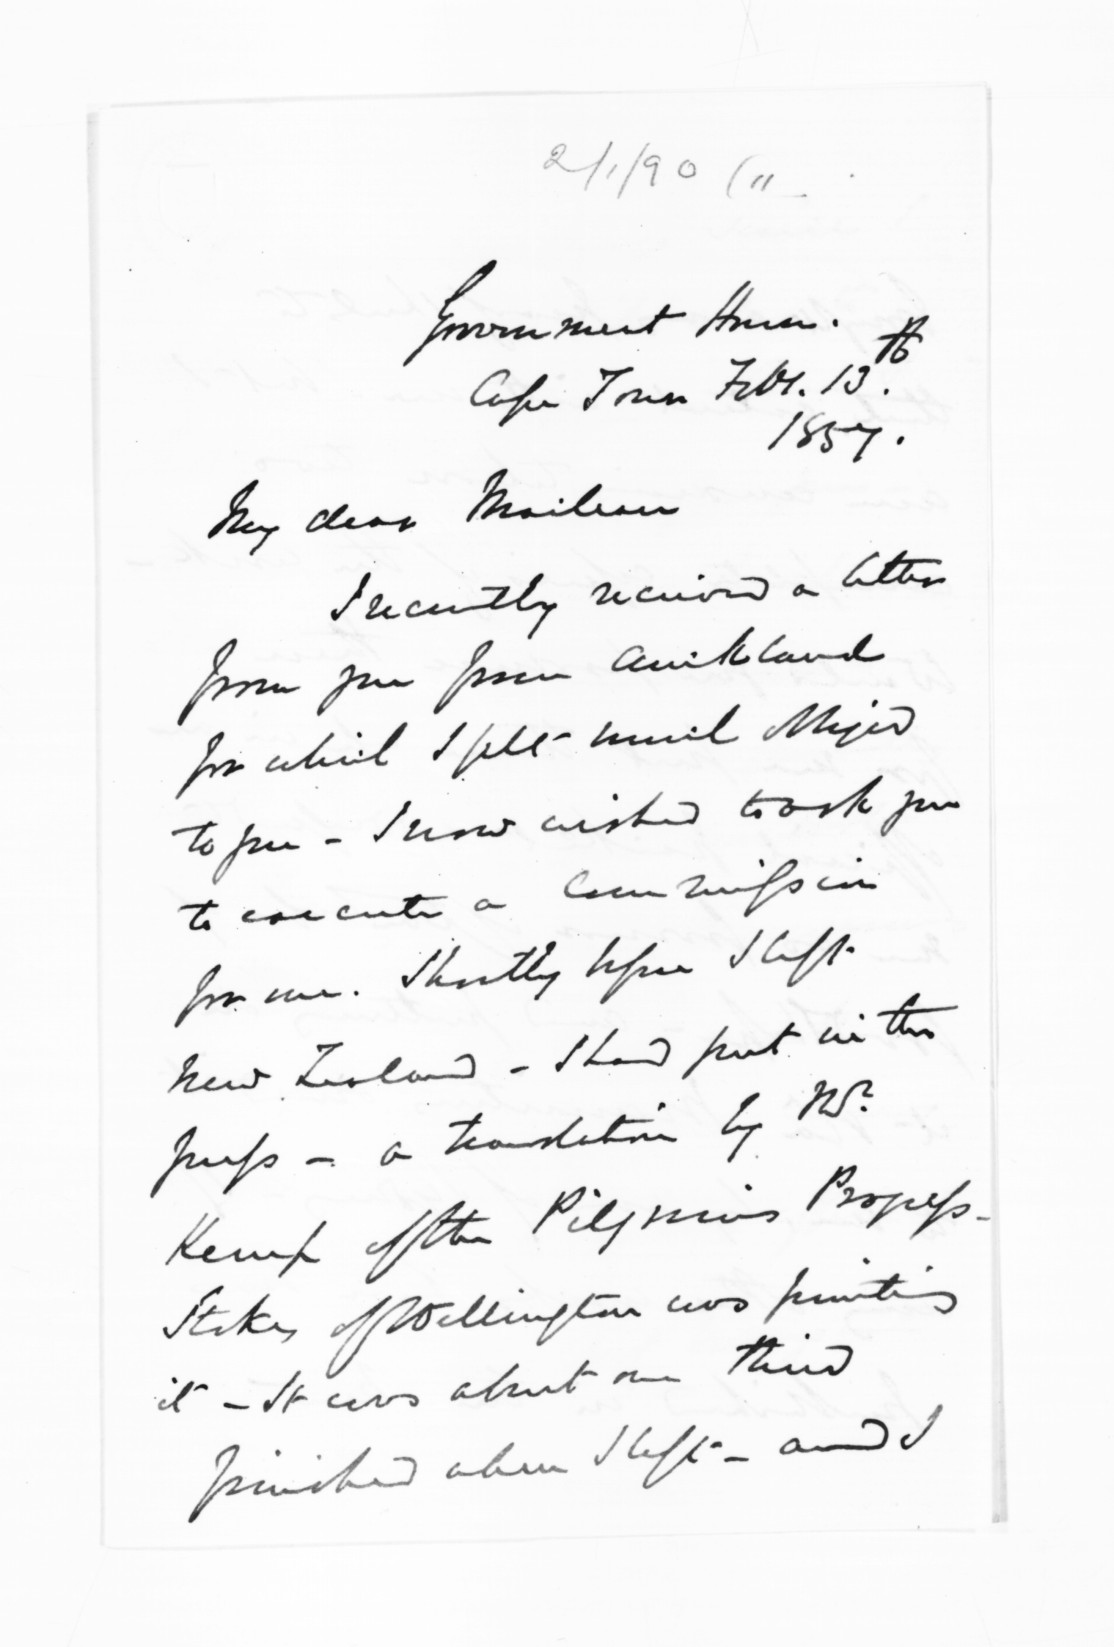 2/1/90 (11
Government House.
Cape Town Feb. 13th.
1857.
My dear Maclean
I recently received a letter
from you from Auckland
for which I felt much obliged
to you - I now wished to ask you
to execute a commission
for me. Shortly before I left
New Zealand - I had put in the
press - a translation by Mr.
Kemp of the Pilgrims Progress -
Stokes of Wellington was printing
it - It was about one third
finished when I left - and I